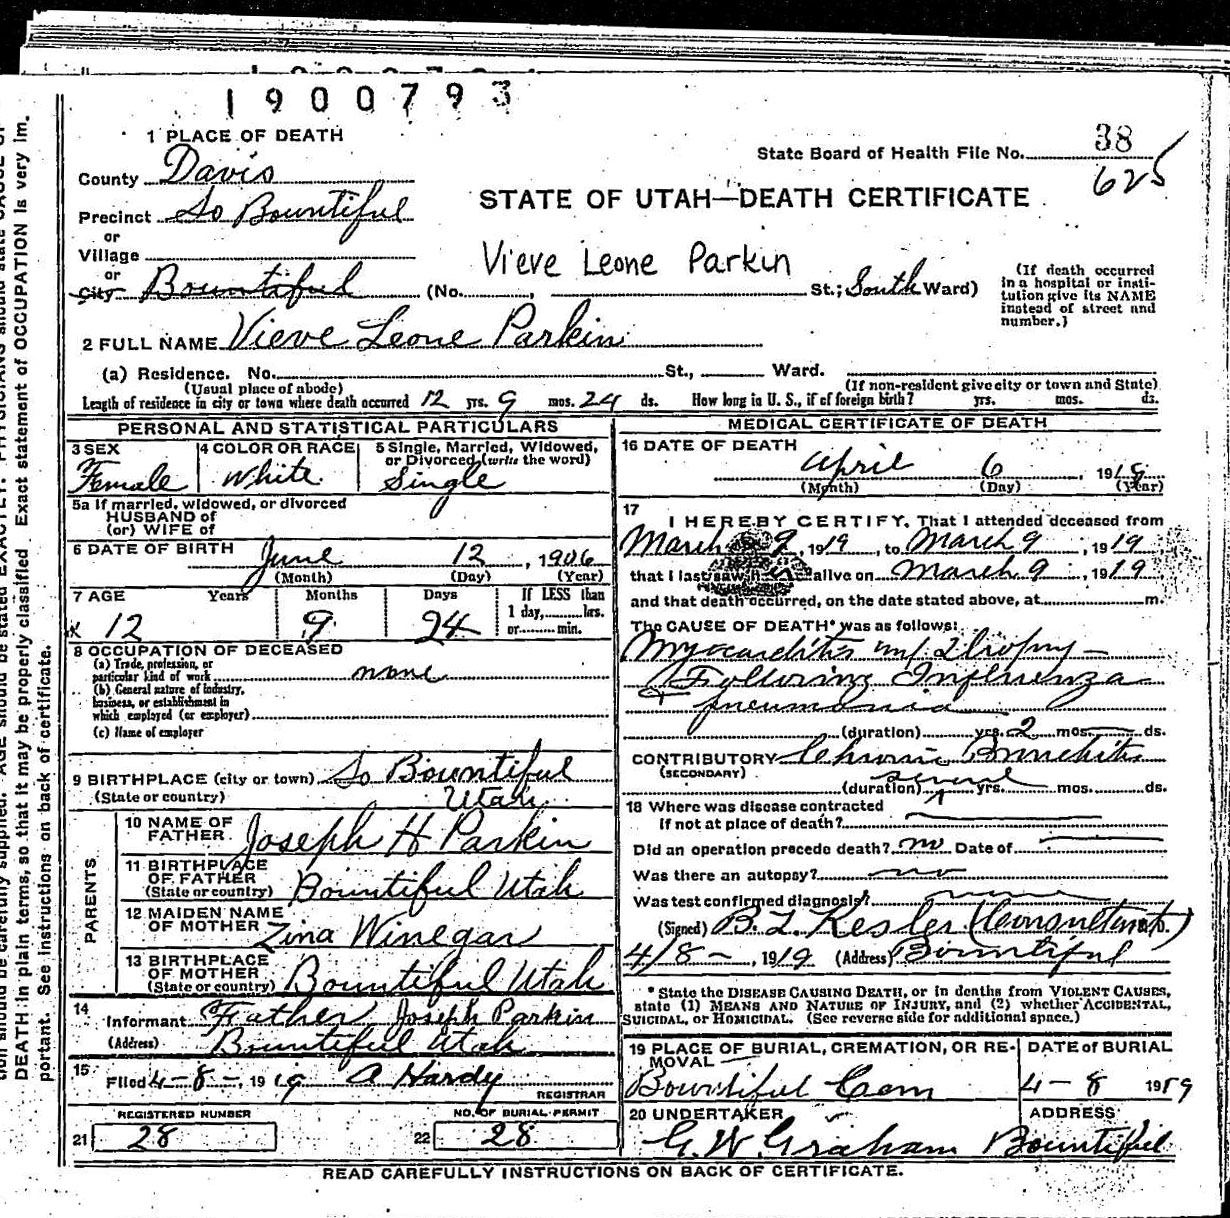 1900793
1 PLACE OF DEATH
State Board of Health File No. 38
625
County Davis
STATE OF UTAH—DEATH CERTIFICATE
Precinct So Bountiful
or
Village
Vieve Leone Parkin
or
City Bountiful (No. , St.; South Ward)
(If death occurred in a hospital or insti-
tution give its NAME
instead of street and
number.)
2 FULL NAME Vieve Leone Parkin
(a) Residence. No. St., Ward.
(Usual place of abode) (If non-resident give city or town and State)
Length of residence in city or town where death occurred 12 yrs. 9 mos. 24 ds. How long in U. S., if of foreign birth? yrs. mos. ds.
PERSONAL AND STATISTICAL PARTICULARS
3 SEX
Female
4 COLOR OR RACE
White
5 Single, Married, Widowed,
or Divorced (write the word)
Single
5a If married, widowed, or divorced
HUSBAND of
(or) WIFE of
6 DATE OF BIRTH June 12, 1906
(Month) (Day) (Year)
7 AGE Years Months Days If LESS than
1 day, hrs.
or min.
12 9 24
8 OCCUPATION OF DECEASED
(a) Trade, profession, or
particular kind of work none
(b) General nature of industry,
business, or establishment in
which employed (or employer)
(c) Name of employer
9 BIRTHPLACE (city or town) So Bountiful
(State or country) Utah
PARENTS
10 NAME OF
FATHER Joseph H Parkin
11 BIRTHPLACE
OF FATHER
(State or country) Bountiful Utah
12 MAIDEN NAME
OF MOTHER Zina Winegar
13 BIRTHPLACE
OF MOTHER
(State or country) Bountiful Utah
14
Informant Father Joseph Parkin
(Address) Bountiful Utah
15
Filed 4-8-, 1919 A Hardy
REGISTRAR
REGISTERED NUMBER
21 28
NO. OF BURIAL PERMIT
22 28
MEDICAL CERTIFICATE OF DEATH
16 DATE OF DEATH
April 6, 1919
(Month) (Day) (Year)
17
I HEREBY CERTIFY, That I attended deceased from
March 9, 1919, to March 9, 1919
that I last saw h alive on March 9, 1919
and that death occurred, on the date stated above, at m.
The CAUSE OF DEATH* was as follows:
Myocarditis
Following Influenza
+ pneumonia
(duration) yrs. 2 mos. ds.
CONTRIBUTORY Chronic Bronchitis
(SECONDARY)
(duration) several yrs. mos. ds.
18 Where was disease contracted
if not at place of death?
Did an operation precede death? no Date of
Was there an autopsy? no
Was test confirmed diagnosis?
(Signed) B. L. Kesler (Consultant.)
4/8-, 1919 (Address) Bountiful
* State the DISEASE CAUSING DEATH, or in deaths from VIOLENT CAUSES,
state (1) MEANS AND NATURE OF INJURY, and (2) whether ACCIDENTAL,
SUICIDAL, or HOMICIDAL. (See reverse side for additional space.)
19 PLACE OF BURIAL, CREMATION, OR RE-
MOVAL
Bountiful Cem
DATE of BURIAL
4-8 1919
20 UNDERTAKER
G. W. Graham
ADDRESS
Bountiful
READ CAREFULLY INSTRUCTIONS ON BACK OF CERTIFICATE.
DEATH in plain terms, so that it may be properly classified. Exact statement of OCCUPATION is very im-
portant. See instructions on back of certificate.